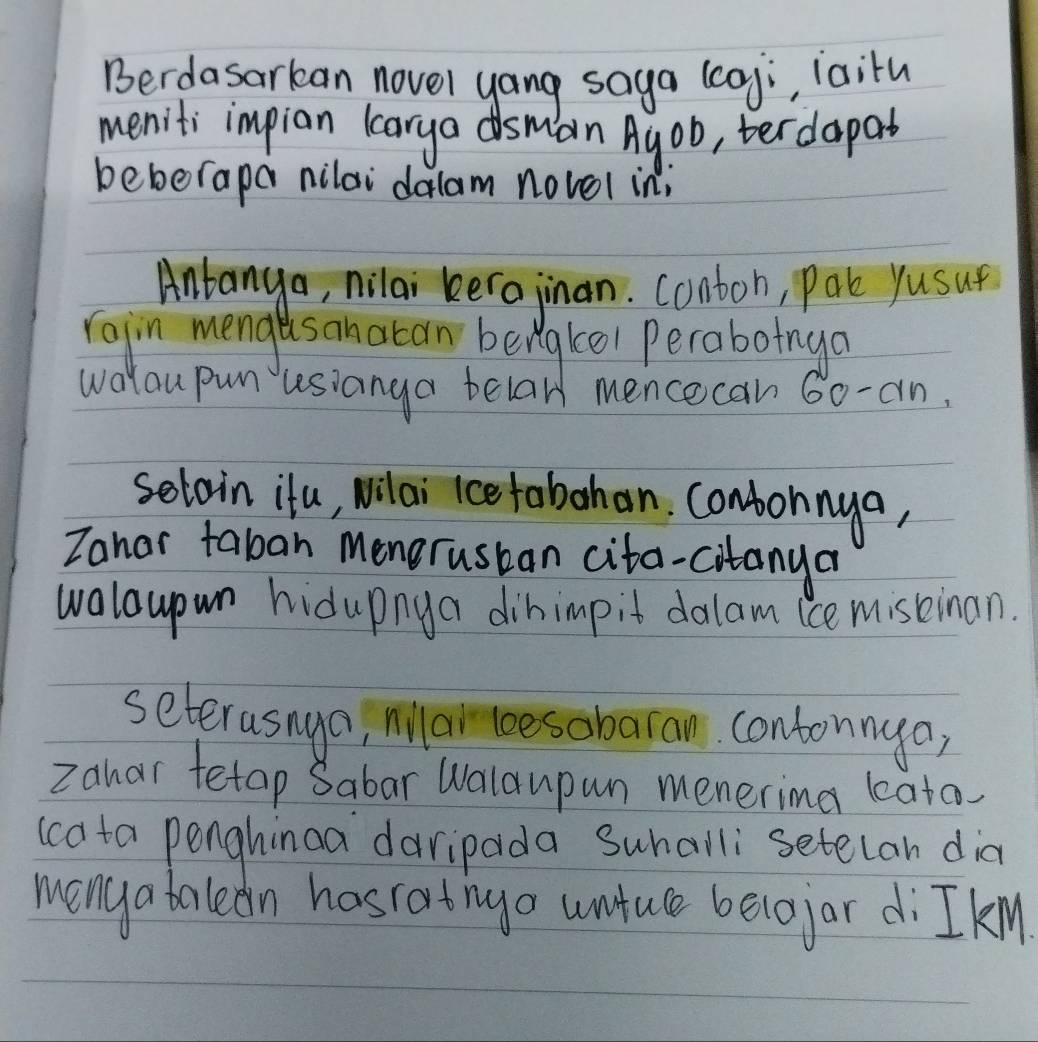 Berdasarkan novel yang saya kaji, iaitu
meniti impian karya osman Ayob, terdapat
beberapa nilai dalam novel ini;
Antanya, nilai kerajinan. contoh, pak Yusuf
rajin mengusahakan bengkel perabotnya
walaupun usianya telah mencecah 60-an.
Selain itu, Nilai ketabahan. Contohnya,
Zahar tabah meneruskan cita-citanya
walaupun hidupnya dihimpit dalam kemiskinan.
seterusnya, nilai kesabaran. contohnya,
zahar tetap sabar walaupun menerima kata-
kata penghinaa daripada Suhaili setelah dia
menyatakan hasratnya untuk belajar di IKM.